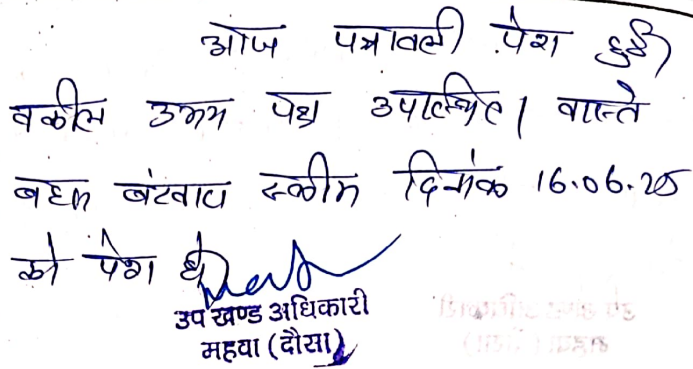 आज पत्रावली पेश हुई
वकील उभय पक्ष उपस्थित। वास्ते
बहस बंटवारा स्कीम दिनांक 16.06.25
को पेश हो
उप खण्ड अधिकारी
महवा (दौसा)